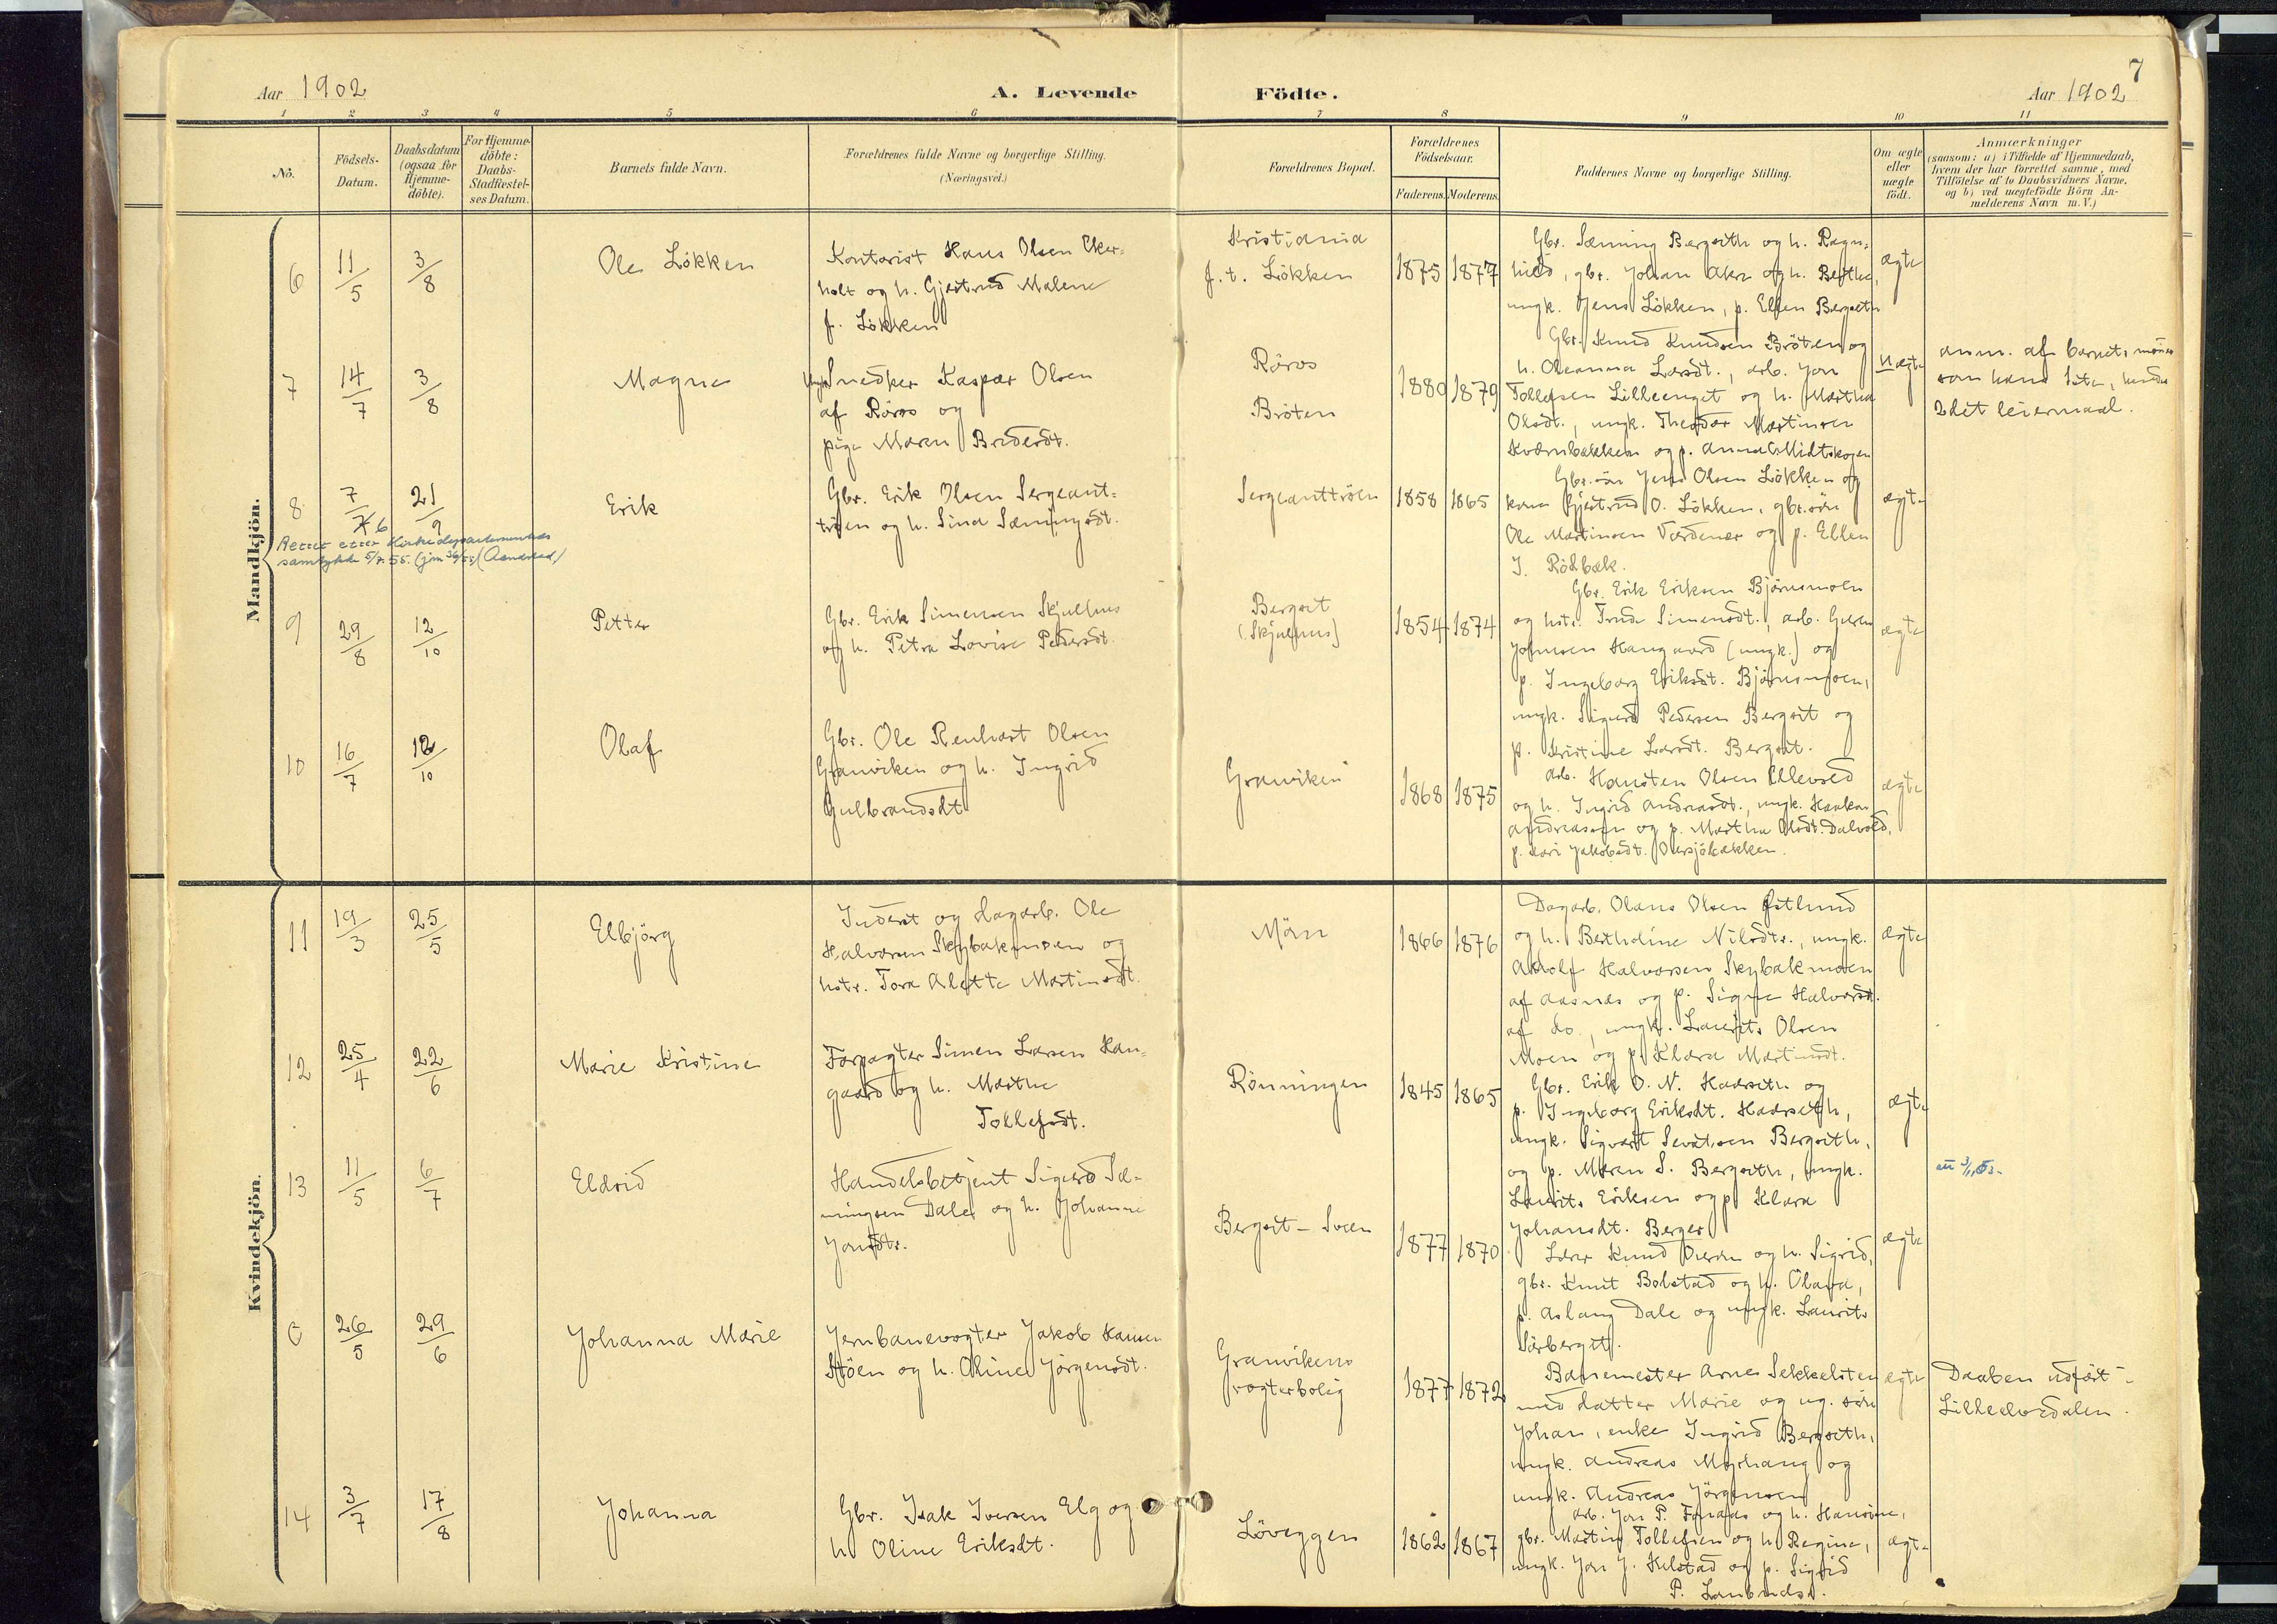 7
Aar 1902
A. Levende
Födte.
Aar 1902
1 2 3 4 5 6 7 8 9 10 11
No.
Födsels-Datum.
Daabsdatum (ogsaa for Hjemme-döbte).
For Hjemme-döbte: Daabs-Stadfæstel-ses Datum.
Barnets fulde Navn.
Forældrenes fulde Navne og borgerlige Stilling.
(Næringsvei.)
Forældrenes Bopæl.
Forældrenes Födselsaar.
Faderens. Moderens.
Faddernes Navne og borgerlige Stilling.
Om ægte eller uægte födt.
Anmærkninger
(saasom: a) i Tilfælde af Hjemmedaab,
hvem der har forrettet samme, med
Tilföielse af to Daabsvidners Navne,
og b) ved uægtefödte Börn An-
melderens Navn m. V.)
Mandkjön.
6 11/5 3/8 Ole Lökken
Kontorist Hans Olsen Eker-
holt og h. Gjertrud Malene
f. Lökken
Kristiania
f. t. Lökken
1875 1877
Gbr. Sæming Bergseth og h. Ragn-
hild, gbr. Johan Aker og h. Berthe,
ungk. Jens Lökken, p. Ellen Bergseth
ægte
7 14/7 3/8 Magne
Ungk. Snedker Kaspar Olsen
af Röros og
pige Maren Bredesdt.
Röros
Bröten
1880 1879
Gbr. Knud Knudsen Bröten og
h. Oleanna Larsdt., arb. Jon
Tollefsen Lilleenget og h. Martha
Olsdt., ungk. Theodor Martinsen
Kværnbakken og p. Anna Midtskogen
uægte
anm. af barnets moder
som hans 1ste, hendes
2det leiermaal.
8 7/7 6 21/9 Erik
Rettet etter Kirkedepartementets
samtykke 5/7.55.
Gbr. Erik Olsen Sergeant-
tröen og h. Sina Sæmingsdt.
Sergeanttröen
1858 1865
Gbr.sön Jens Olsen Lökken og
kona Gjertrud O. Lökken, gbr.sön
Ole Martinsen Værdener og p. Ellen
J. Rödbæk.
ægte
9 29/8 12/10 Petter
Gbr. Erik Simensen Skjulhus
og h. Petra Lovise Pedersdt.
Bergset
(Skjulhus)
1854 1874
Gbr. Erik Eriksen Björesmoen
og hstr. Trude Simensdt., arb.
Johnsen Haugaard (ungk.) og
p. Ingeborg Eriksdt. Björesmoen,
ungk. Sigurd Pedersen Bergset og
p. Kristine Larsdt. Bergset.
ægte
10 16/7 12/10 Olaf
Gbr. Ole Renhart Olsen
Granviken og h. Ingrid
Gulbrandsdt
Granviken
1868 1875
arb. Hansten Olsen Ellevsed
og h. Ingrid Andreasdt., ungk. Haakon
Andreassen og p. Martha Olsdt. Dalvold,
p. Kari Jakobsdt. Oversjöbækken.
ægte
Kvindekjön.
11 19/3 25/5 Elbjörg
Inderst og dagarb. Ole
Halvorsen Skybakmoen og
hstr. Tora Alette Martinsdt.
Mörn
1866 1876
Dagarb. Olaus Olsen Østlund
og h. Bertholine Nilsdtr., ungk.
Adolf Halvorsen Skybakmoen
af Aasnes og p. Signe Halvorsdt.
af do., ungk. Laurits Olsen
Moen og p. Klara Martinsdt.
ægte
12 25/4 22/6 Marie Kristine
Forpagter Simen Larsen Hau-
gaard og h. Marthe
Tollefsdt.
Rönningen
1845 1865
Gbr. Erik O. N. Haarseth og
p. Ingeborg Eriksdt. Haarseth,
ungk. Sigvart Sevatsen Bergseth,
og p. Maren S. Bergseth, ungk.
Laurits Eriksen og p. Klara
Johansdt. Berger
ægte
13 11/5 6/7 Eldrid
Handelsbetjent Sigurd Sæ-
mingsen Dale og h. Johanne
Jonsdtr.
Bergset - Sveen
1877 1870
Lærer Knud Oversen og h. Sigrid,
gbr. Knut Bolstad og h. Olava,
p. Aslaug Dale og ungk. Laurits
Sörberget.
ægte
0 26/5 29/6 Johanna Marie
Jernbanevogter Jakob Hansen
Stöen og h. Oline Jörgensdt.
Granvikens
vogterbolig
1877 1872
Banemester Arnes Sekkelsten
med datter Marie og ug. sön
Johan, enke Ingrid Bergseth,
ungk. Andreas Myrhaug og
ungk. Andreas Jörgensen
ægte
Daaben udfört i
Lilleelvedalen.
14 3/7 17/8 Johanna
Gbr. Isak Iversen Elg og
h. Oline Eriksdt.
Löveggen
1862 1867
arb. Jon P. Fonaas og h. Hansine,
gbr. Martin Tollefsen og h. Regine,
ungk. Jon J. Kilstad og p. Sigrid
P.
ægte